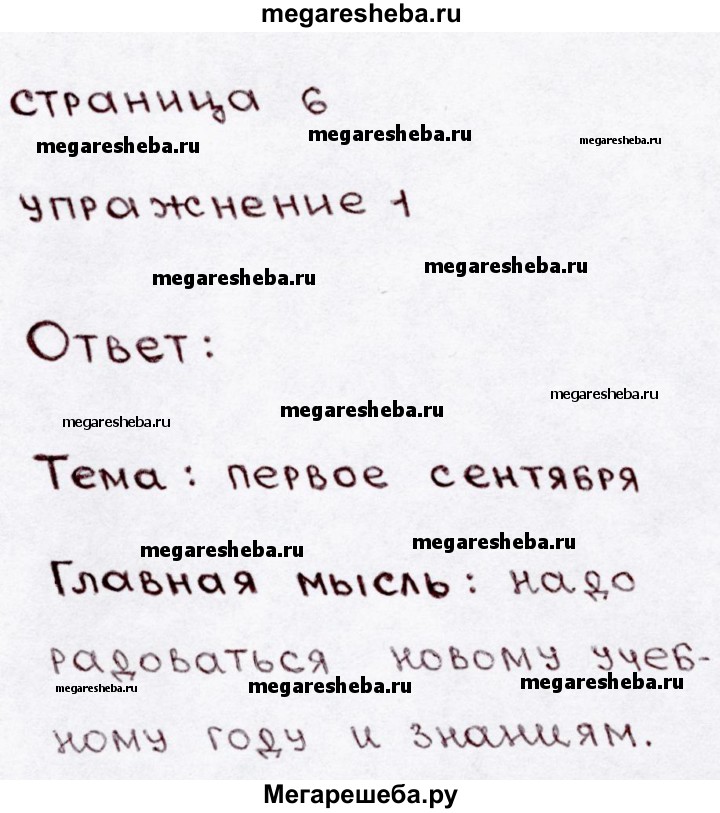 megaresheba.ru
страница 6
megaresheba.ru megaresheba.ru megaresheba.ru
упражнение 1
megaresheba.ru megaresheba.ru
Ответ:
megaresheba.ru megaresheba.ru megaresheba.ru
Тема: первое сентября
megaresheba.ru megaresheba.ru
Главная мысль: надо
радоваться новому учеб-
megaresheba.ru megaresheba.ru megaresheba.ru
ному году и знаниям.
Мегарешеба.ру